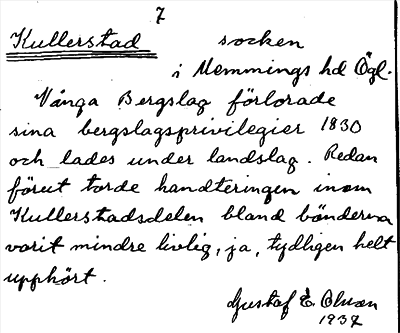 7
Kullerstad socken
i Memmings hd Ögl.
Vånga Bergslag förlorade
sina bergslagsprivilegier 1830
och lades under landslag. Redan
förut torde handteringen inom
Kullerstadsdelen bland bönderna
varit mindre livlig, ja, tydligen helt
upphört.
Gustaf E. Olsson
1937